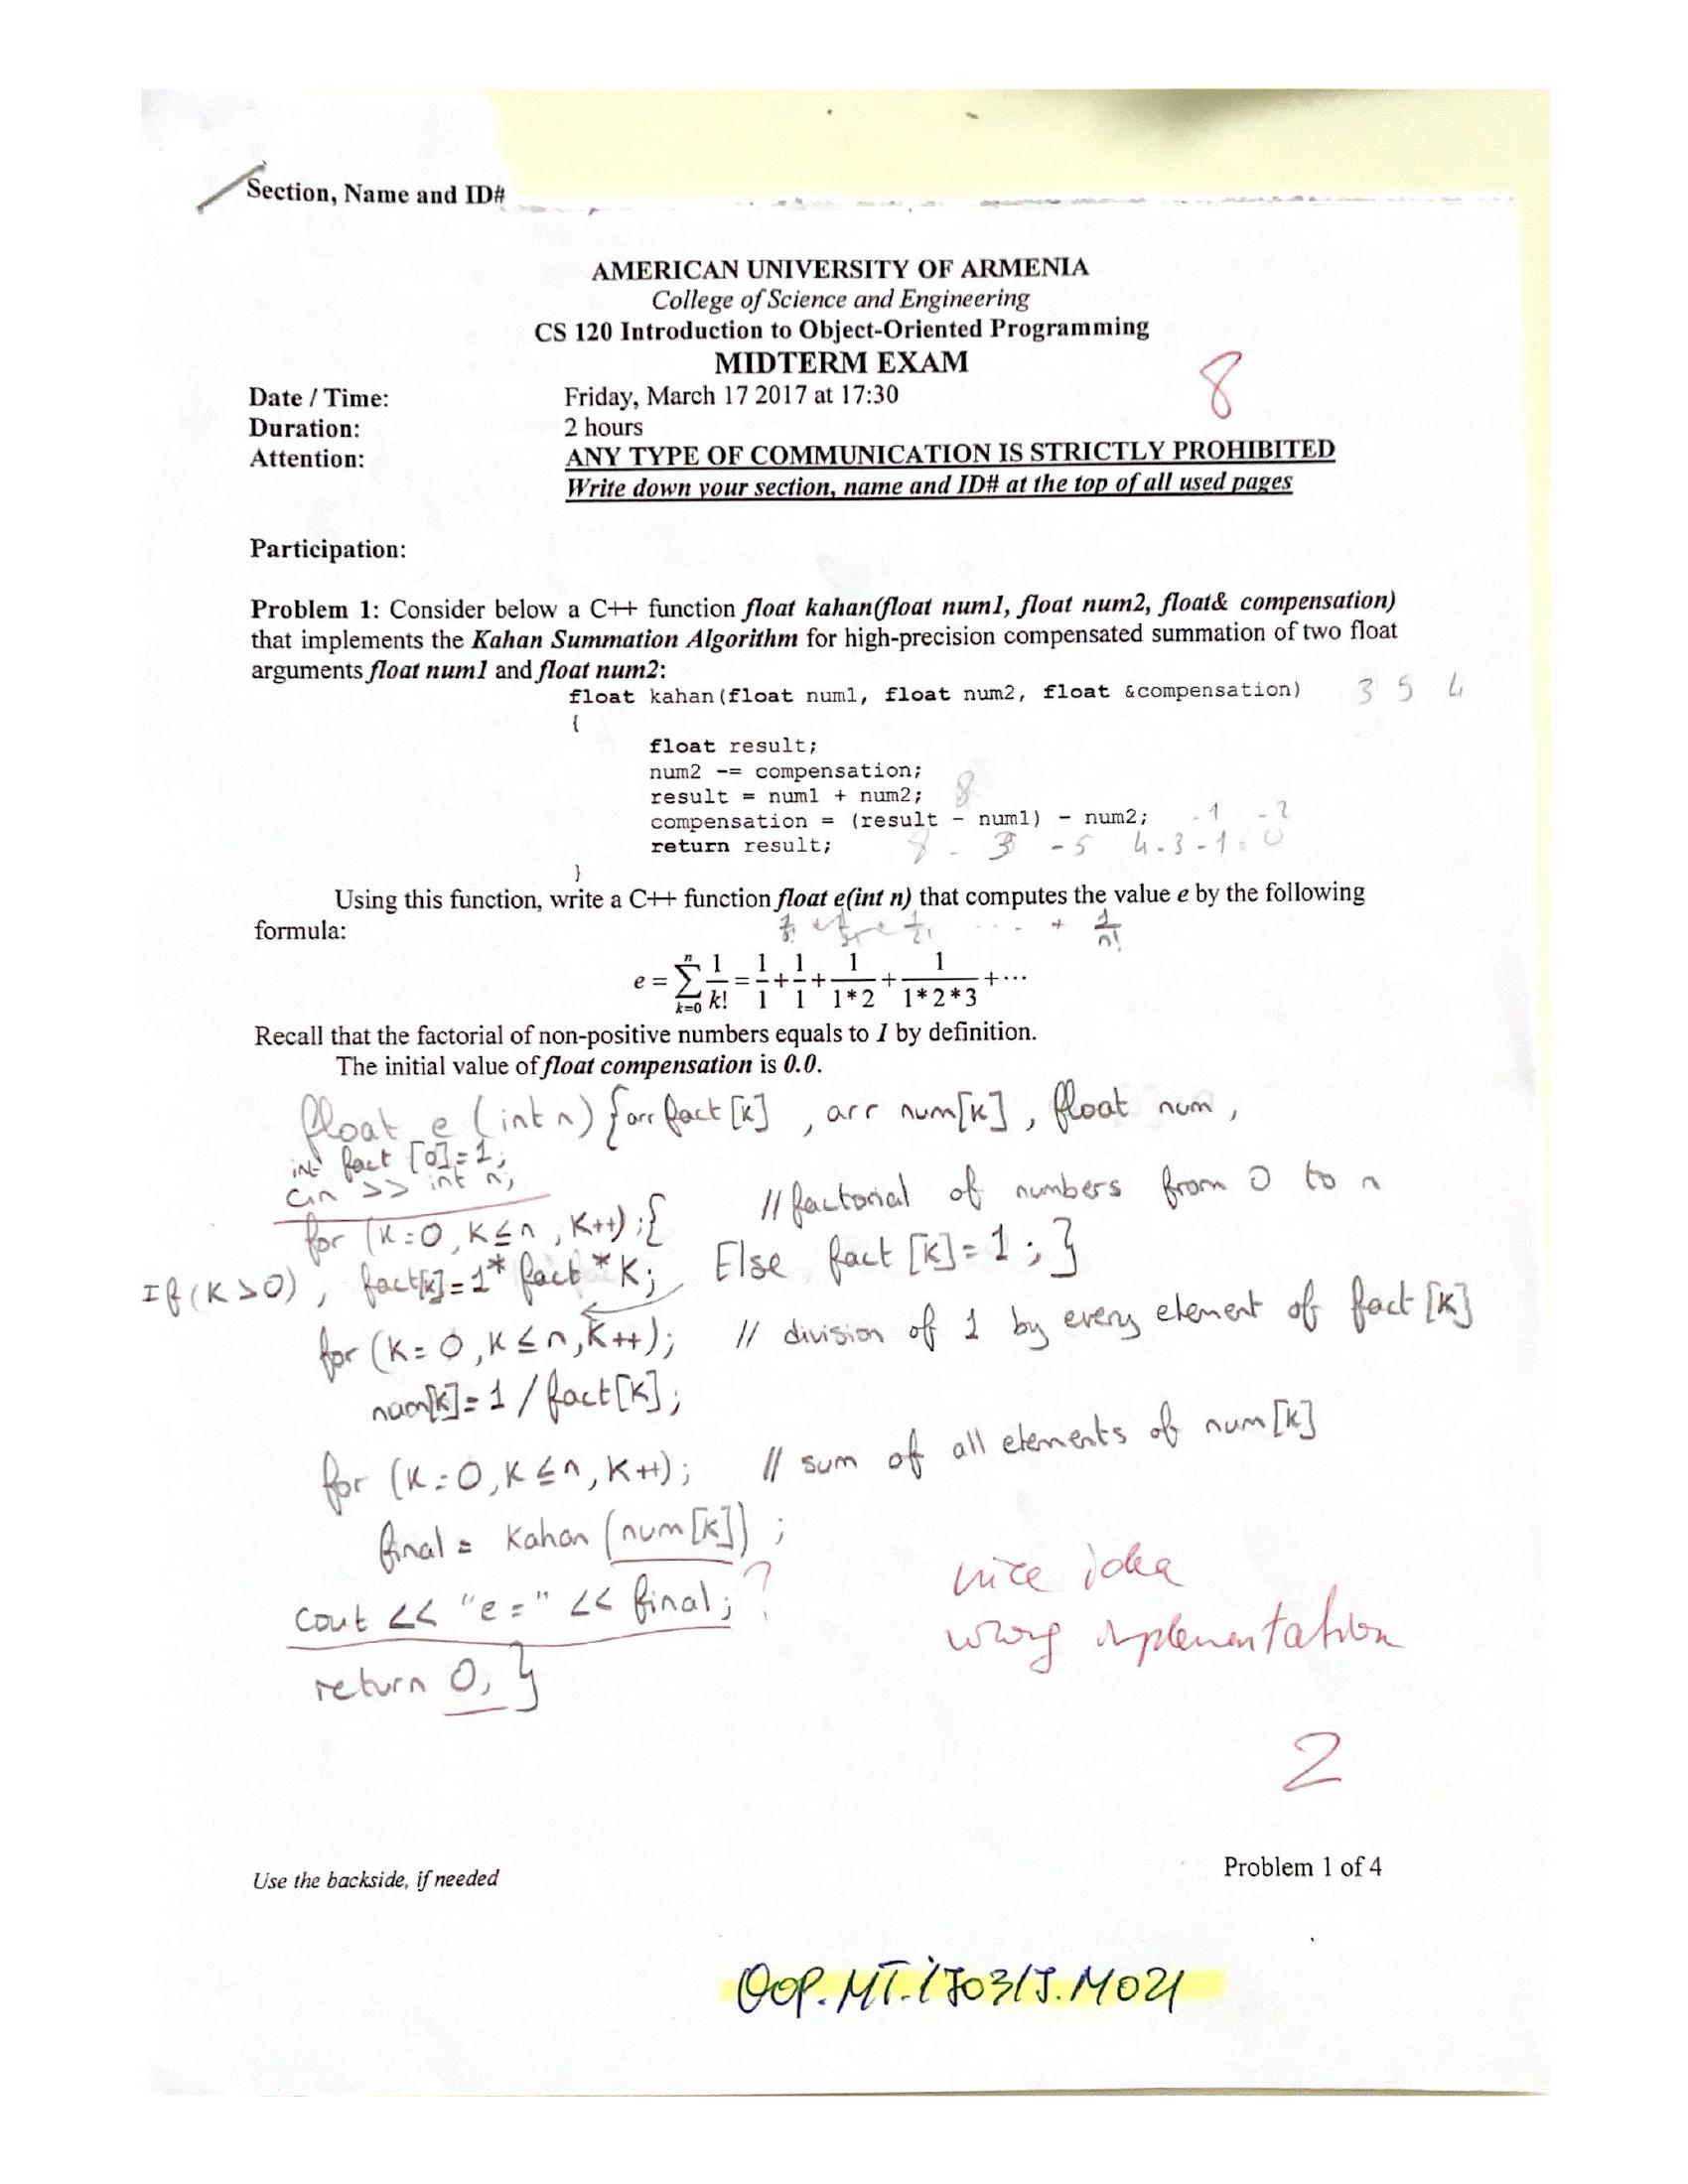 Section, Name and ID#
AMERICAN UNIVERSITY OF ARMENIA
College of Science and Engineering
CS 120 Introduction to Object-Oriented Programming
MIDTERM EXAM
8
Date / Time: Friday, March 17 2017 at 17:30
Duration: 2 hours
Attention: ANY TYPE OF COMMUNICATION IS STRICTLY PROHIBITED
Write down your section, name and ID# at the top of all used pages
Participation:
Problem 1: Consider below a C++ function float kahan(float num1, float num2, float& compensation)
that implements the Kahan Summation Algorithm for high-precision compensated summation of two float
arguments float num1 and float num2:
float kahan(float num1, float num2, float &compensation) 3 5 4
{
float result;
num2 -= compensation;
result = num1 + num2; 8
compensation = (result - num1) - num2; -1 -2
return result; 8 - 3 - 5 4-3-1=0
}
Using this function, write a C++ function float e(int n) that computes the value e by the following
formula:
... + 1/n!
e = ∑ₖ₌₀ⁿ 1/k! = 1/1 + 1/1 + 1/1*2 + 1/1*2*3 + ···
Recall that the factorial of non-positive numbers equals to 1 by definition.
The initial value of float compensation is 0.0.
float e (int n) { arr fact [k] , arr num[k] , float num ,
int fact [0]=1;
Cin >> int n;
for (k=0, k≤n, k++);{ // factorial of numbers from 0 to n
If (k>0), fact[k]=1* fact *k; Else fact [k]=1 ; }
for (k=0, k≤n, k++); // division of 1 by every element of fact [k]
num[k]=1 / fact[k];
for (k=0, k≤n, k++); // sum of all elements of num[k]
final = kahan (num[k]) ;
cout << "e=" << final; ?
return 0, }
nice idea
wrong implementation
2
Use the backside, if needed
Problem 1 of 4
OOP.MT.170317.M021